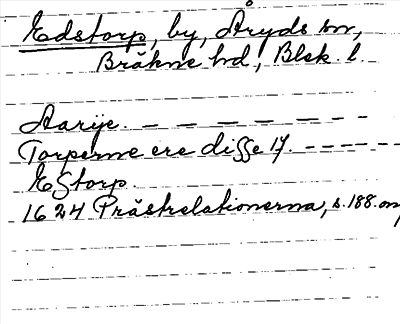 Edstorp, by, Åryds sn,
Bräkne hd, Blek. l.
Aarije. — — — — — — —
Torperne ere disse 17. — — — — —
Estorp.
1624 Prästrelationerna, s. 188.